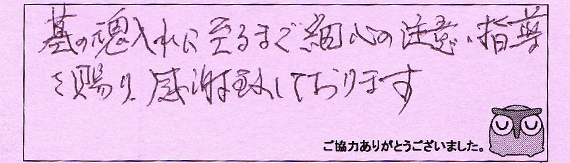 墓の魂入れに至るまで細心の注意、指導
を賜り、感謝致しております
ご協力ありがとうございました。